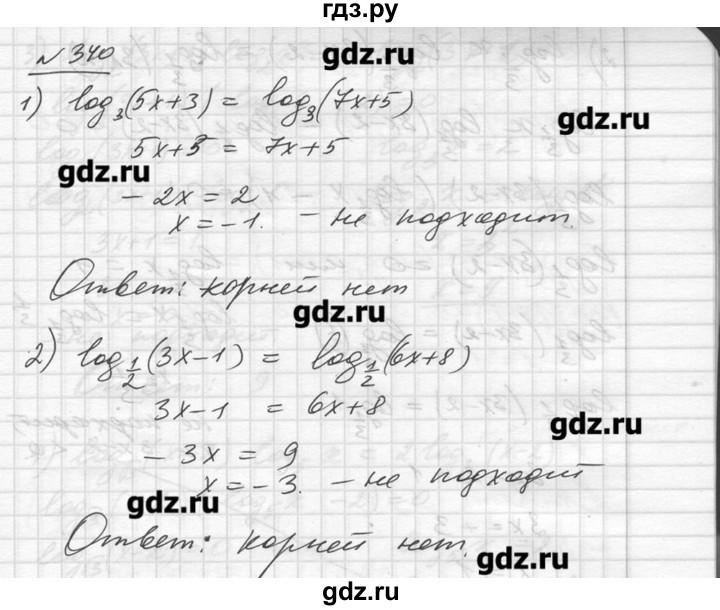 гдз.ру
№ 340
gdz.ru
1) log₃(5x+3) = log₃(7x+5)
gdz.ru
5x+3 = 7x+5
gdz.ru
- 2x = 2
x = -1. - не подходит.
Ответ: корней нет
gdz.ru
2) log_{1/2}(3x-1) = log_{1/2}(6x+8)
3x-1 = 6x+8
gdz.ru
- 3x = 9
x = -3. - не подходит
gdz.ru
Ответ: корней нет.
gdz.ru
gdz.ru